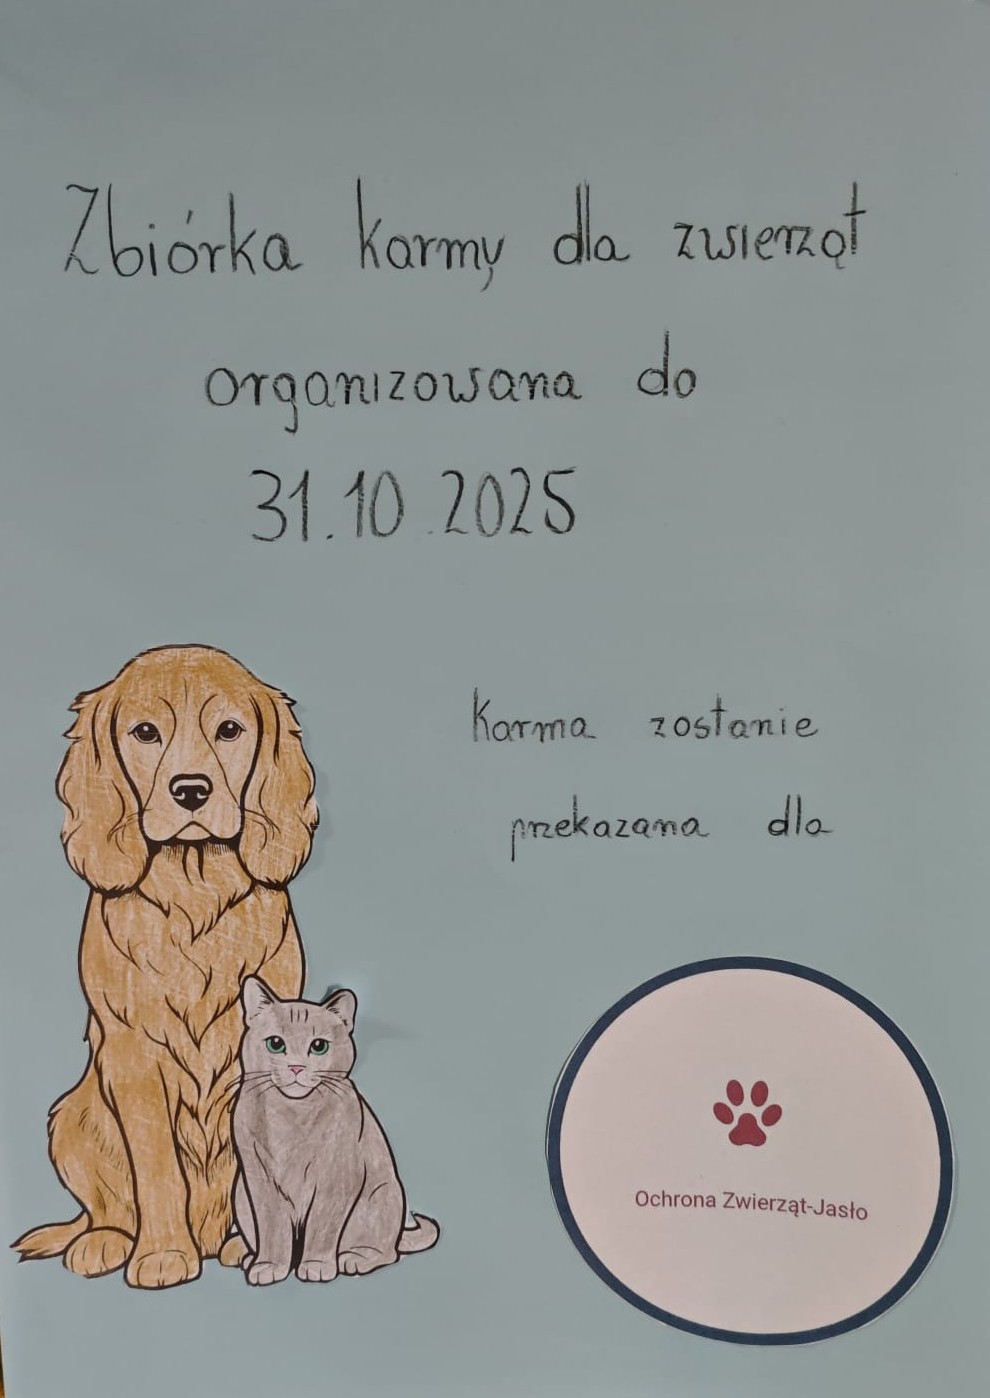 Zbiórka karmy dla zwierząt
organizowana do
31.10.2025
Karma zostanie
przekazana dla
Ochrona Zwierząt-Jasło